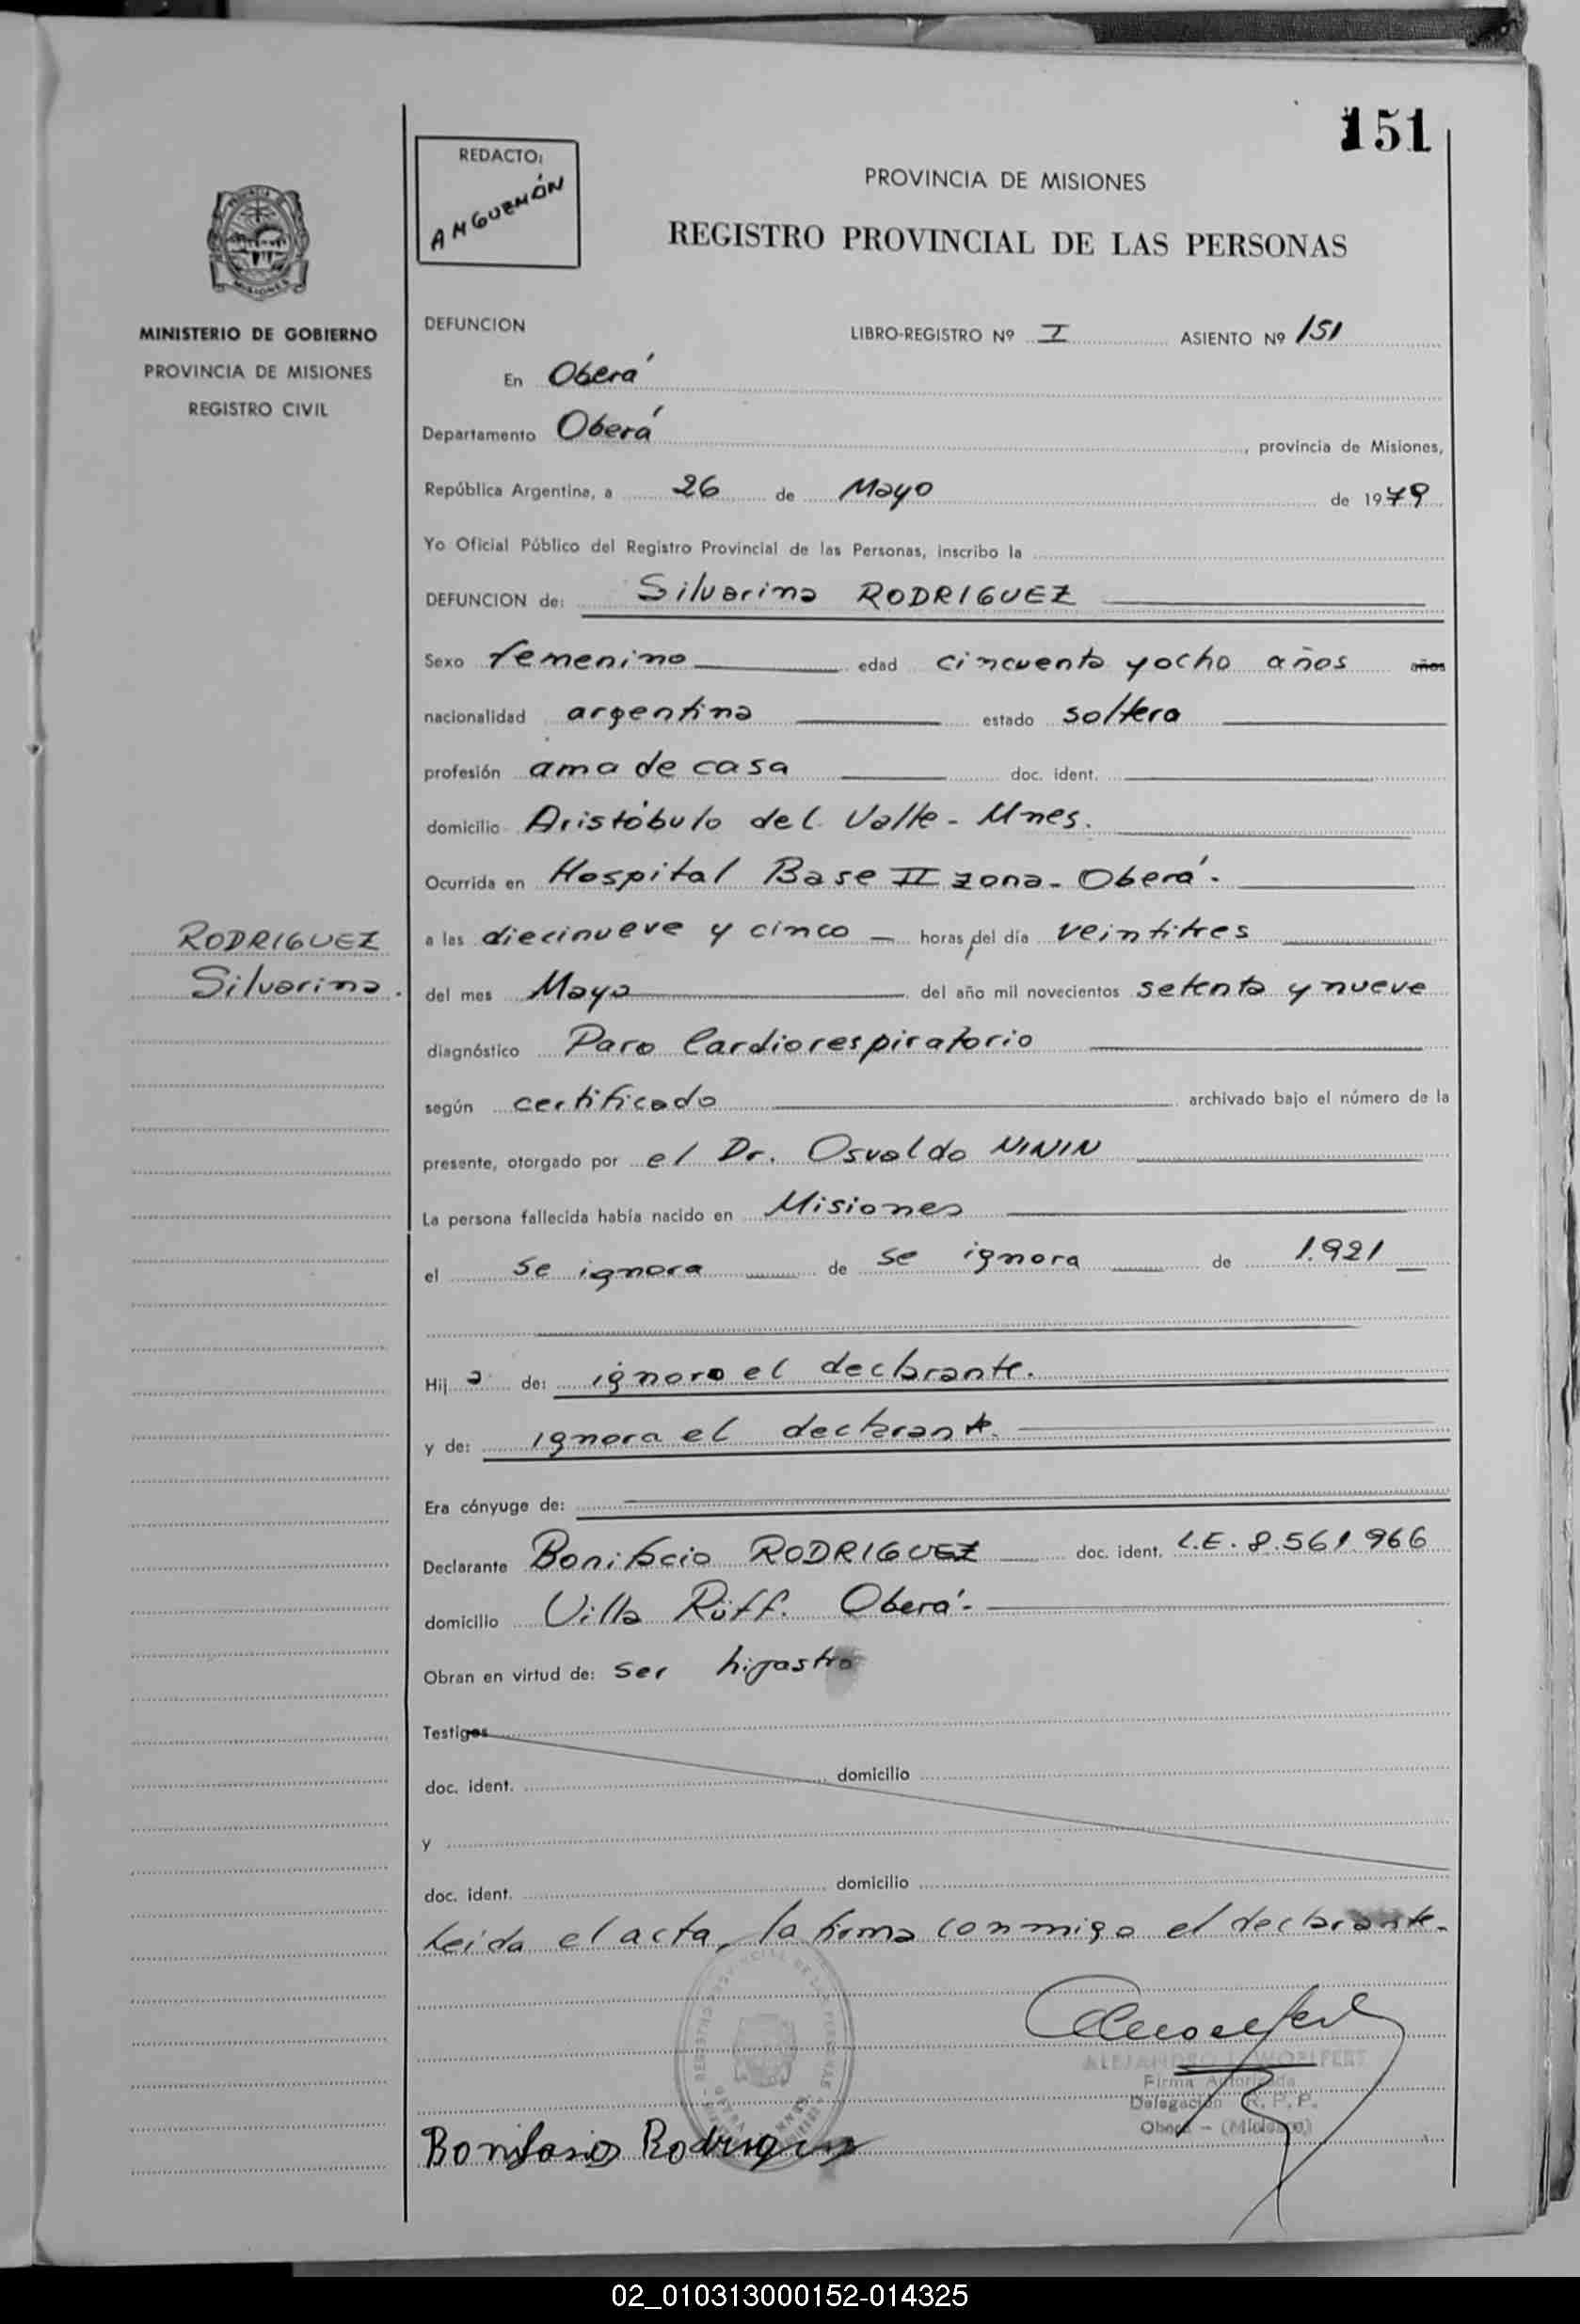 151
REDACTO:
ANGUEMÓN
PROVINCIA DE MISIONES
REGISTRO PROVINCIAL DE LAS PERSONAS
MISIONES
MINISTERIO DE GOBIERNO
PROVINCIA DE MISIONES
REGISTRO CIVIL
DEFUNCION LIBRO-REGISTRO Nº I ASIENTO Nº 151
En Oberá
Departamento Oberá, provincia de Misiones,
República Argentina, a 26 de Mayo de 1979
Yo Oficial Público del Registro Provincial de las Personas, inscribo la
DEFUNCION de: Silvarina RODRIGUEZ
Sexo femenino edad cincuenta y ocho años años
nacionalidad argentina estado soltera
profesión ama de casa doc. ident.
domicilio Aristóbulo del Valle - Mnes.
Ocurrida en Hospital Base II zona - Oberá.
RODRIGUEZ
Silvarina.
a las diecinueve y cinco horas del día veintitres
del mes Mayo del año mil novecientos setenta y nueve
diagnóstico Paro Cardiorespiratorio
según certificado archivado bajo el número de la
presente, otorgado por el Dr. Osvaldo NININ
La persona fallecida había nacido en Misiones
el se ignora de se ignora de 1.921
Hij a de: ignora el declarante.
y de: ignora el declarante.
Era cónyuge de:
Declarante Bonifacio RODRIGUEZ doc. ident. L.E. 8.561.966
domicilio Villa Rüff. Oberá-
Obran en virtud de: ser hijastro
Testigos
doc. ident. domicilio
y
doc. ident. domicilio
Leida el acta, la firma conmigo el declarante-
ALEJANDRO L. WOELFERT
Firma Autorizada
Delegación R. P. P.
Oberá - (Misiones)
Bonifasio Rodriguez
02_010313000152-014325